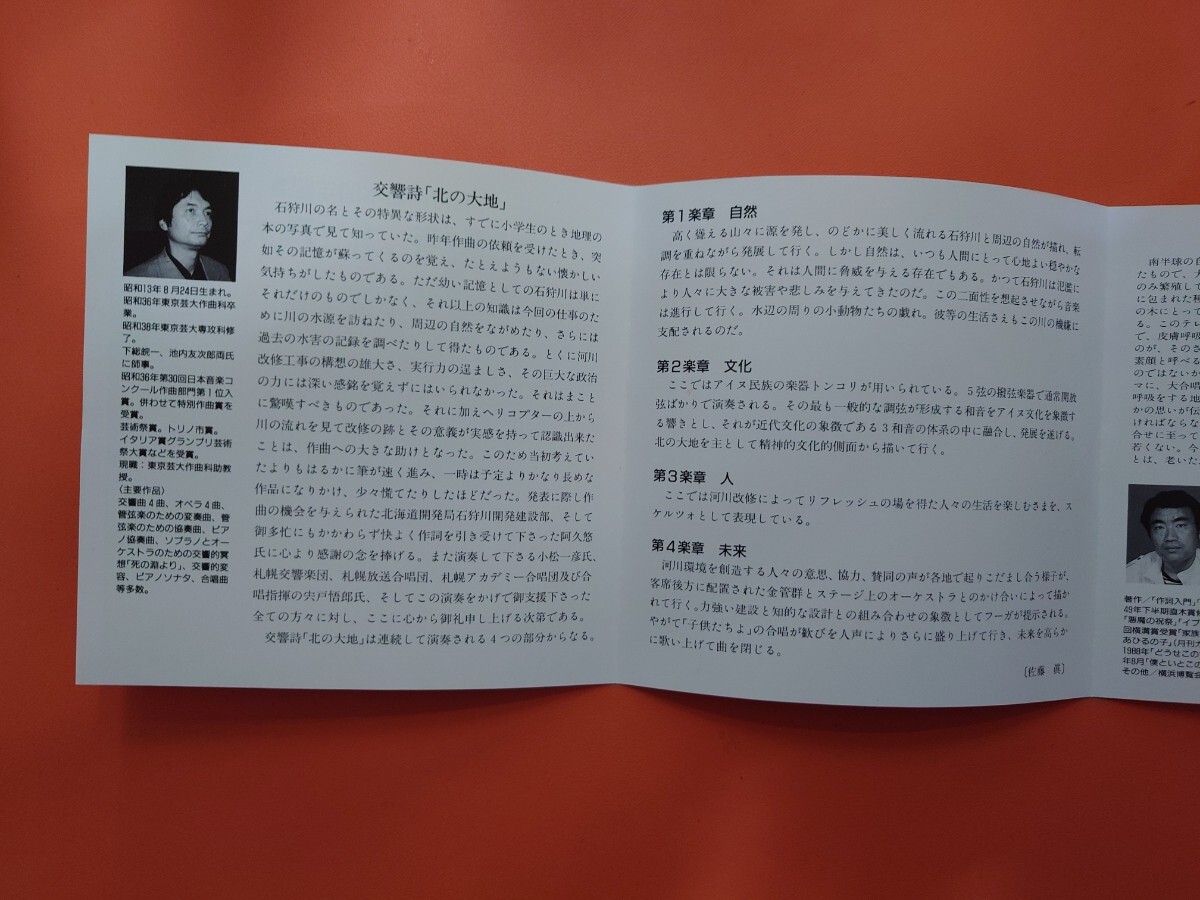 昭和13年8月24日生まれ。
昭和36年東京芸大作曲科卒
業。
昭和38年東京芸大専攻科修
了。
下総皖一、池内友次郎両氏
に師事。
昭和36年第30回日本音楽コ
ンクール作曲部門第1位入
賞。併わせて特別作曲賞を
受賞。
芸術祭賞。トリノ市賞。
イタリア賞グランプリ芸術
祭大賞などを受賞。
現職:東京芸大作曲科助教
授。
(主要作品)
交響曲4曲、オペラ4曲、
管弦楽のための変奏曲、管
弦楽のための協奏曲、ピア
ノ協奏曲、ソプラノとオー
ケストラのための交響的冥
想「死の淵より」、交響的変
容、ピアノソナタ、合唱曲
等多数。
交響詩「北の大地」
石狩川の名とその特異な形状は、すでに小学生のとき地理の
本の写真で見て知っていた。昨年作曲の依頼を受けたとき、突
如その記憶が蘇ってくるのを覚え、たとえようもない懐かしい
気持ちがしたものである。ただ幼い記憶としての石狩川は単に
それだけのものでしかなく、それ以上の知識は今回の仕事のた
めに川の水源を訪ねたり、周辺の自然をながめたり、さらには
過去の水害の記録を調べたりして得たものである。とくに河川
改修工事の構想の雄大さ、実行力の逞ましさ、その巨大な政治
の力には深い感銘を覚えずにはいられなかった。それはまこと
に驚嘆すべきものであった。それに加えヘリコプターの上から
川の流れを見て改修の跡とその意義が実感を持って認識出来た
ことは、作曲への大きな助けとなった。このため当初考えてい
たよりもはるかに筆が速く進み、一時は予定よりかなり長めな
作品になりかけ、少々慌てたりしたほどだった。発表に際し作
曲の機会を与えられた北海道開発局石狩川開発建設部、そして
御多忙にもかかわらず快よく作詞を引き受けて下さった阿久悠
氏に心より感謝の念を捧げる。また演奏して下さる小松一彦氏、
札幌交響楽団、札幌放送合唱団、札幌アカデミー合唱団及び合
唱指揮の宍戸悟郎氏、そしてこの演奏をかげで御支援下さった
全ての方々に対し、ここに心から御礼申し上げる次第である。
交響詩「北の大地」は連続して演奏される4つの部分からなる。
第1楽章 自然
高く聳える山々に源を発し、のどかに美しく流れる石狩川と周辺の自然が描れ、転
調を重ねながら発展して行く。しかし自然は、いつも人間にとって心地よい穏やかな
存在とは限らない。それは人間に脅威を与える存在でもある。かつて石狩川は氾濫に
より人々に大きな被害や悲しみを与えてきたのだ。この二面性を想起させながら音楽
は進行して行く。水辺の周りの小動物たちの戯れ。彼等の生活さえもこの川の機嫌に
支配されるのだ。
第2楽章 文化
ここではアイヌ民族の楽器トンコリが用いられている。5弦の撥弦楽器で通常開放
弦ばかりで演奏される。その最も一般的な調弦が形成する和音をアイヌ文化を象徴す
る響きとし、それが近代文化の象徴である3和音の体系の中に融合し、発展を遂げる。
北の大地を主として精神的文化的側面から描いて行く。
第3楽章 人
ここでは河川改修によってリフレッシュの場を得た人々の生活を楽しむさまを、ス
ケルツォとして表現している。
第4楽章 未来
河川環境を創造する人々の意思、協力、賛同の声が各地で起りこだまし合う様子が、
客席後方に配置された金管群とステージ上のオーケストラとのかけ合いによって描か
れて行く。力強い建設と知的な設計との組み合わせの象徴としてフーガが提示される。
やがて「子供たちよ」の合唱が歓びを人声によりさらに盛り上げて行き、未来を高らか
に歌い上げて曲を閉じる。
〔佐藤 眞〕
南半球の自
たもので、大
のみ繁殖して
に包まれた種
の木にとって
る。このテレ
で、皮膚呼吸
のが、そのさ
素顔と呼べる
のではないか
マに、大合唱
呼吸をする地
かの思いが伝
ければならな
合せに至って
若くない。今
とは、老いた
著作/「作詞入門」
49年下半期直木賞候
「悪魔の祝祭」「イブ
回横溝賞受賞「家族
あひるの子」(月刊カ
1988年「どうせこの
年8月「僕といとこの
その他/横浜博覧会